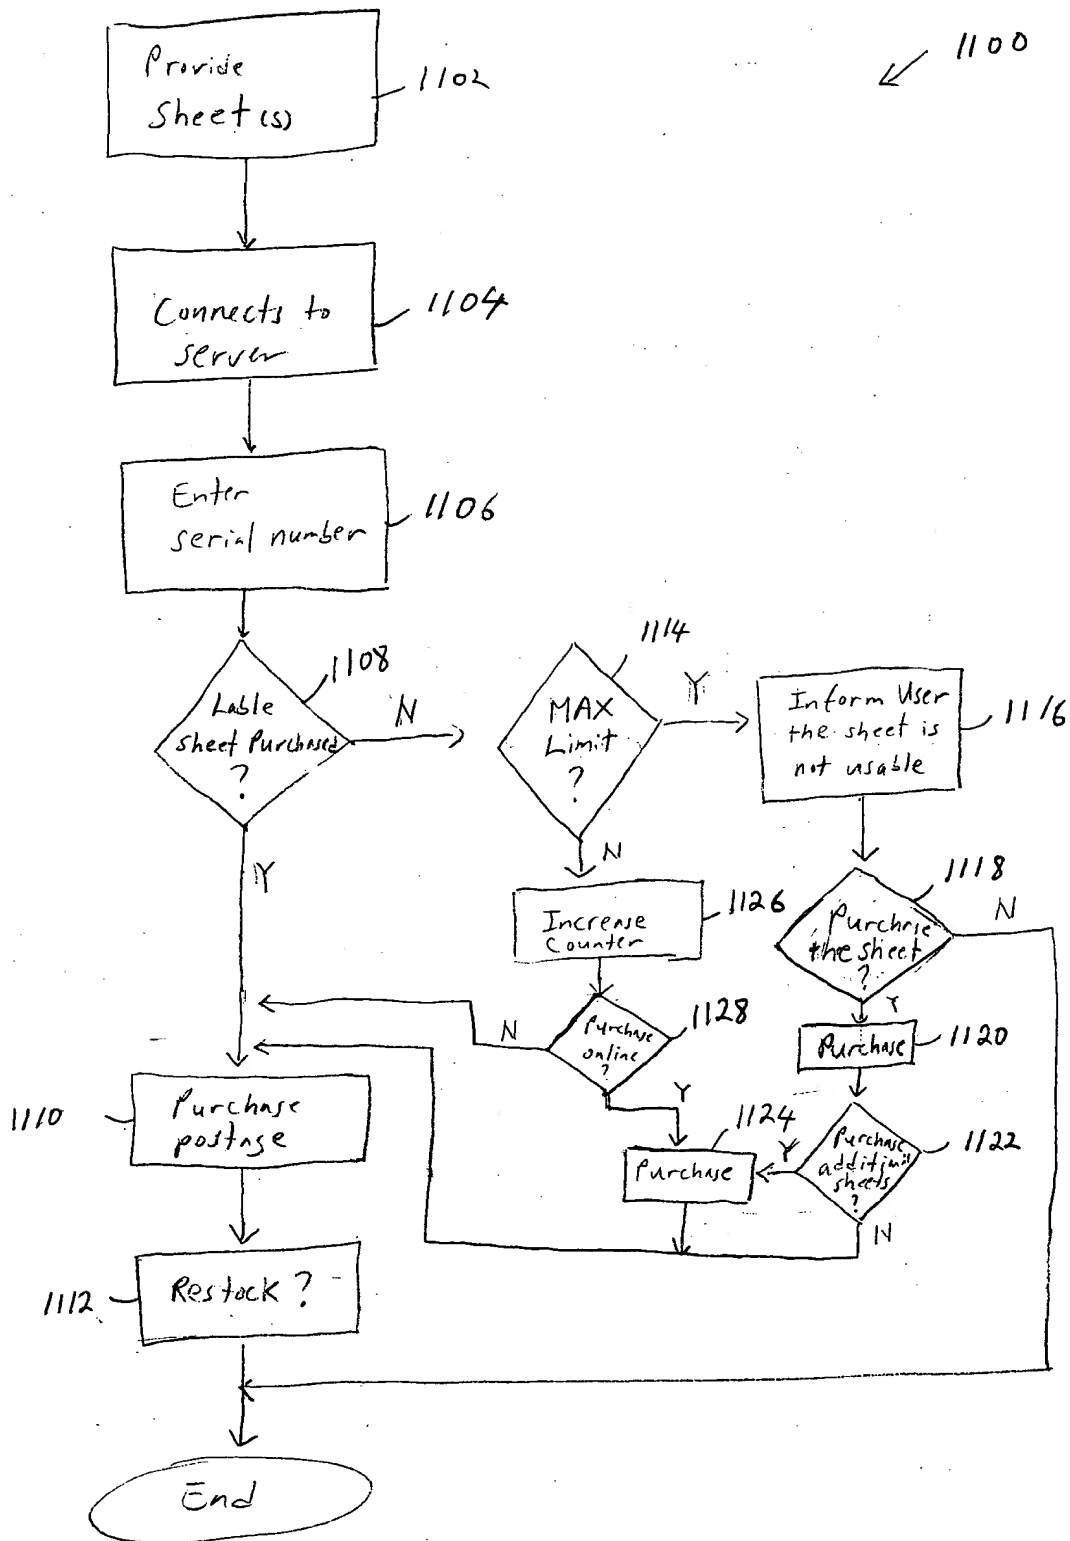 1100
Provide
Sheet(s)
1102
Connects to
server
1104
Enter
serial number
1106
Lable
sheet Purchased
?
1108
N
Y
MAX
Limit
?
1114
Y
N
Inform User
the sheet is
not usable
1116
Purchase
the sheet
?
1118
N
Y
Increase
Counter
1126
Purchase
online
?
1128
N
Y
Purchase
1120
Purchase
additional
sheets
?
1122
Y
N
Purchase
1124
Purchase
postage
1110
Restock ?
1112
End